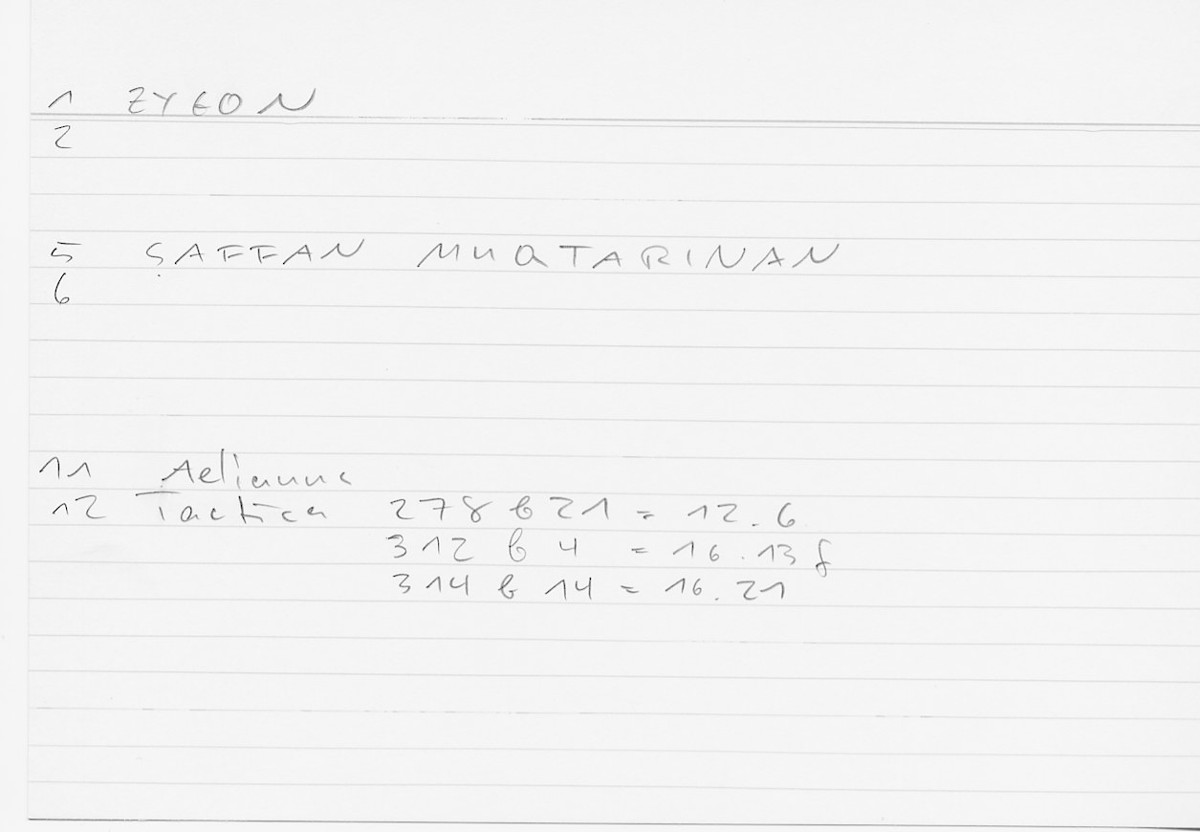 1 ZYGON
2
5 ṢAFFAN MUQTARINAN
6
11 Aelianus
12 Tactica 278 b 21 = 12.6
312 b 4 = 16.13 f
314 b 14 = 16.21